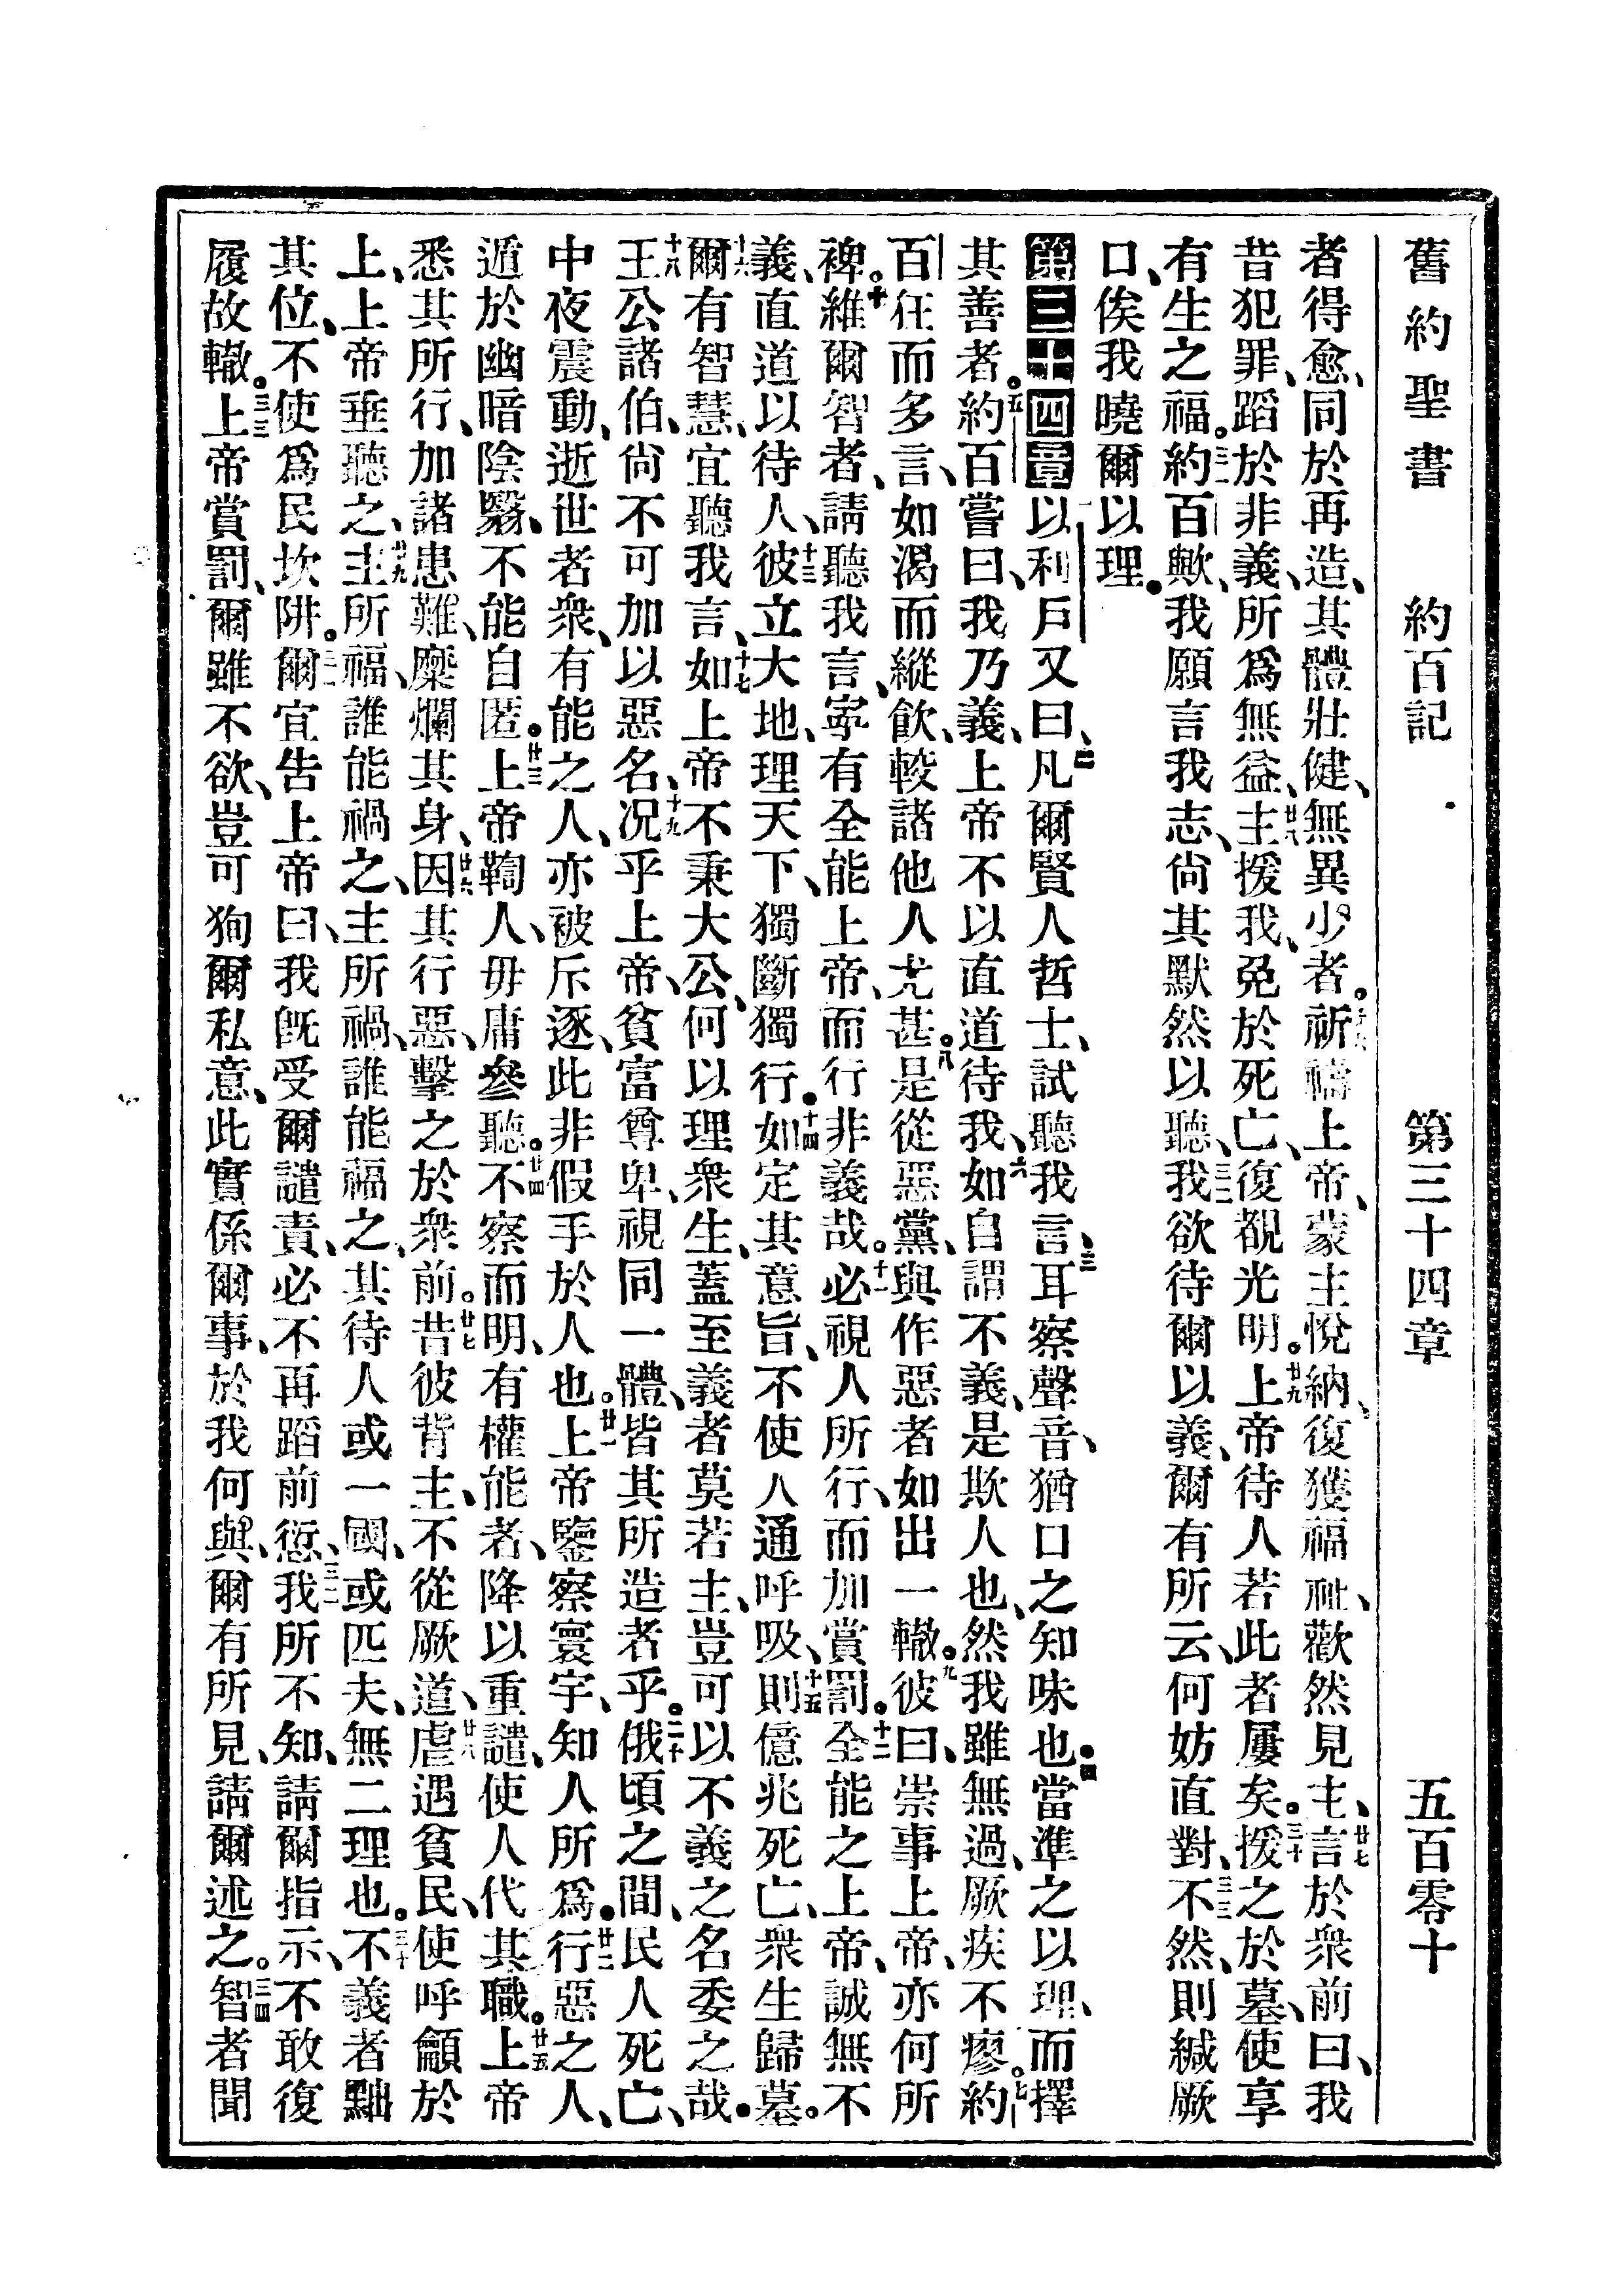 舊約聖書　約百記　第三十四章　五百零十
者得愈、同於再造、其體壯健、無異少者。祈禱上帝、蒙主悅納、復獲福祉、歡然見主、廿七言於衆前曰、我
昔犯罪、蹈於非義、所爲無益、廿八主援我、免於死亡、復覩光明。廿九上帝待人若此者屢矣。三十援之於墓、使享
有生之福。三一約百歟、我願言我志、尙其默然以聽、三二我欲待爾以義、爾有所云、何妨直對、三三不然、則緘厥
口、俟我曉爾以理。
第三十四章一以利戶又曰、二凡爾賢人哲士、試聽我言、三耳察聲音、猶口之知味也。四當準之以理、而擇
其善者。五約百嘗曰、我乃義、上帝不以直道待我、六如自謂不義、是欺人也、然我雖無過、厥疾不瘳。七約
百狂而多言、如渴而縱飮、較諸他人尤甚。八是從惡黨、與作惡者如出一轍。九彼曰、崇事上帝、亦何所
裨。十維爾智者、請聽我言、寧有全能上帝、而行非義哉。十一必視人所行、而加賞罰。十二全能之上帝、誠無不
義、直道以待人、十三彼立大地、理天下、獨斷獨行。十四如定其意旨、不使人通呼吸、十五則億兆死亡、衆生歸墓。
十六爾有智慧、宜聽我言、十七如上帝不秉大公、何以理衆生、蓋至義者莫若主、豈可以不義之名委之哉。
十八王公諸伯、尙不可加以惡名、十九况乎上帝、貧富尊卑、視同一體、皆其所造者乎。二十俄頃之間、民人死亡、
中夜震動、逝世者衆、有能之人、亦被斥逐、此非假手於人也。廿一上帝鑒察寰宇、知人所爲。廿二行惡之人、
遁於幽暗陰翳、不能自匿。廿三上帝鞫人、毋庸參聽。廿四不察而明、有權能者、降以重譴、使人代其職。廿五上帝
悉其所行、加諸患難、糜爛其身、廿六因其行惡、擊之於衆前。廿七昔彼背主、不從厥道、廿八虐遇貧民、使呼龥於
上、上帝垂聽之、廿九主所福、誰能禍之、主所禍、誰能福之、其待人或一國、或匹夫、無二理也。三十不義者黜
其位、不使爲民坎阱。三一爾宜告上帝曰、我旣受爾譴責、必不再蹈前愆、三二我所不知、請爾指示、不敢復
履故轍。三三上帝賞罰、爾雖不欲、豈可狥爾私意、此實係爾事、於我何與、爾有所見、請爾述之。三四智者聞